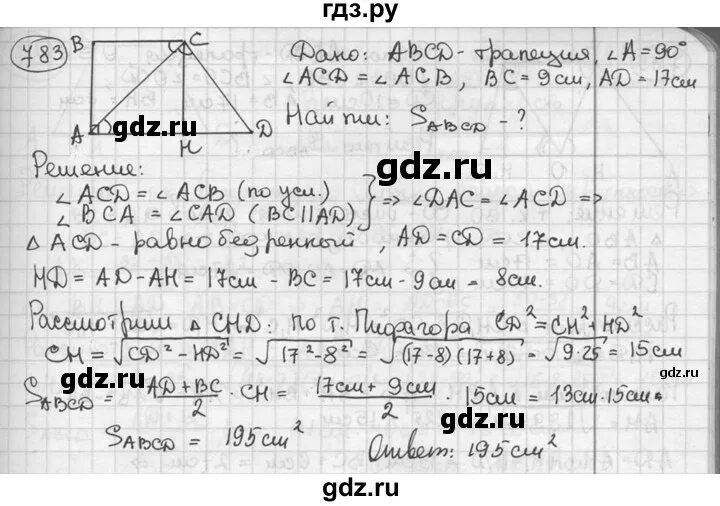 гдз.ру
783
B C
A H D
Дано: ABCD - трапеция, ∠A = 90°
∠ACD = ∠ACB, BC = 9 см, AD = 17 см
Найти: S_ABCD - ?
gdz.ru
Решение:
∠ACD = ∠ACB (по усл.)
∠BCA = ∠CAD (BC || AD) } => ∠DAC = ∠ACD =>
gdz.ru
△ ACD - равнобедренный, AD = CD = 17 см.
HD = AD - AH = 17 см - BC = 17 см - 9 см = 8 см.
gdz.ru
Рассмотрим △ CHD: по т. Пифагора CD² = CH² + HD²
CH = √(CD² - HD²) = √(17² - 8²) = √((17-8)(17+8)) = √(9·25) = 15 см
gdz.ru
S_ABCD = (AD + BC)/2 · CH = (17 см + 9 см)/2 · 15 см = 13 см · 15 см =
S_ABCD = 195 см² Ответ: 195 см²
gdz.ru
gdz.ru